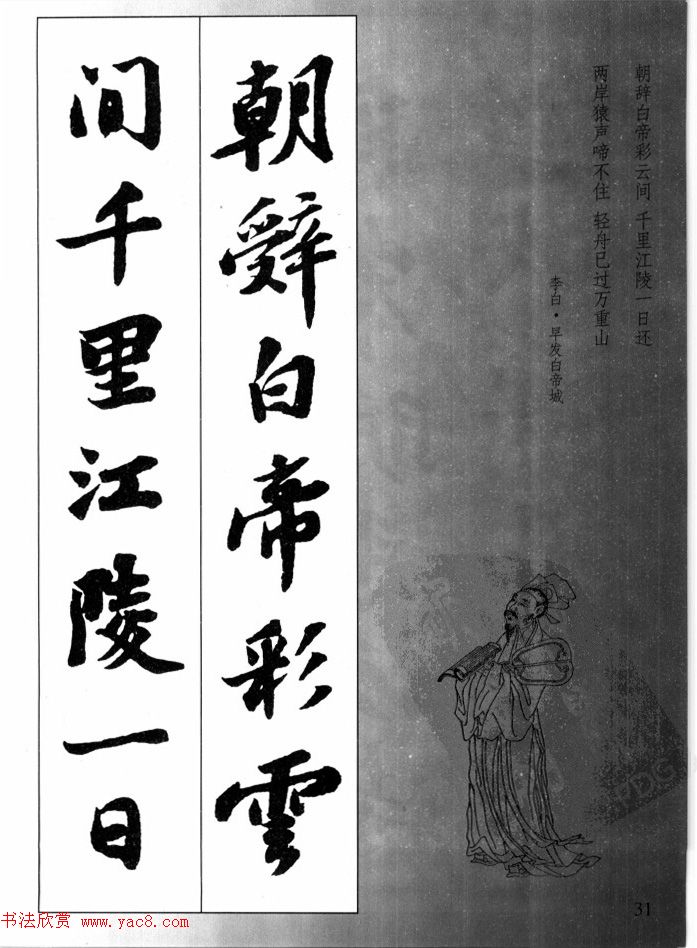 朝辞白帝彩云间 千里江陵一日还
两岸猿声啼不住 轻舟已过万重山
李白·早发白帝城
朝辭白帝彩雲
间千里江陵一日
31
PDG
书法欣赏 www.yac8.com